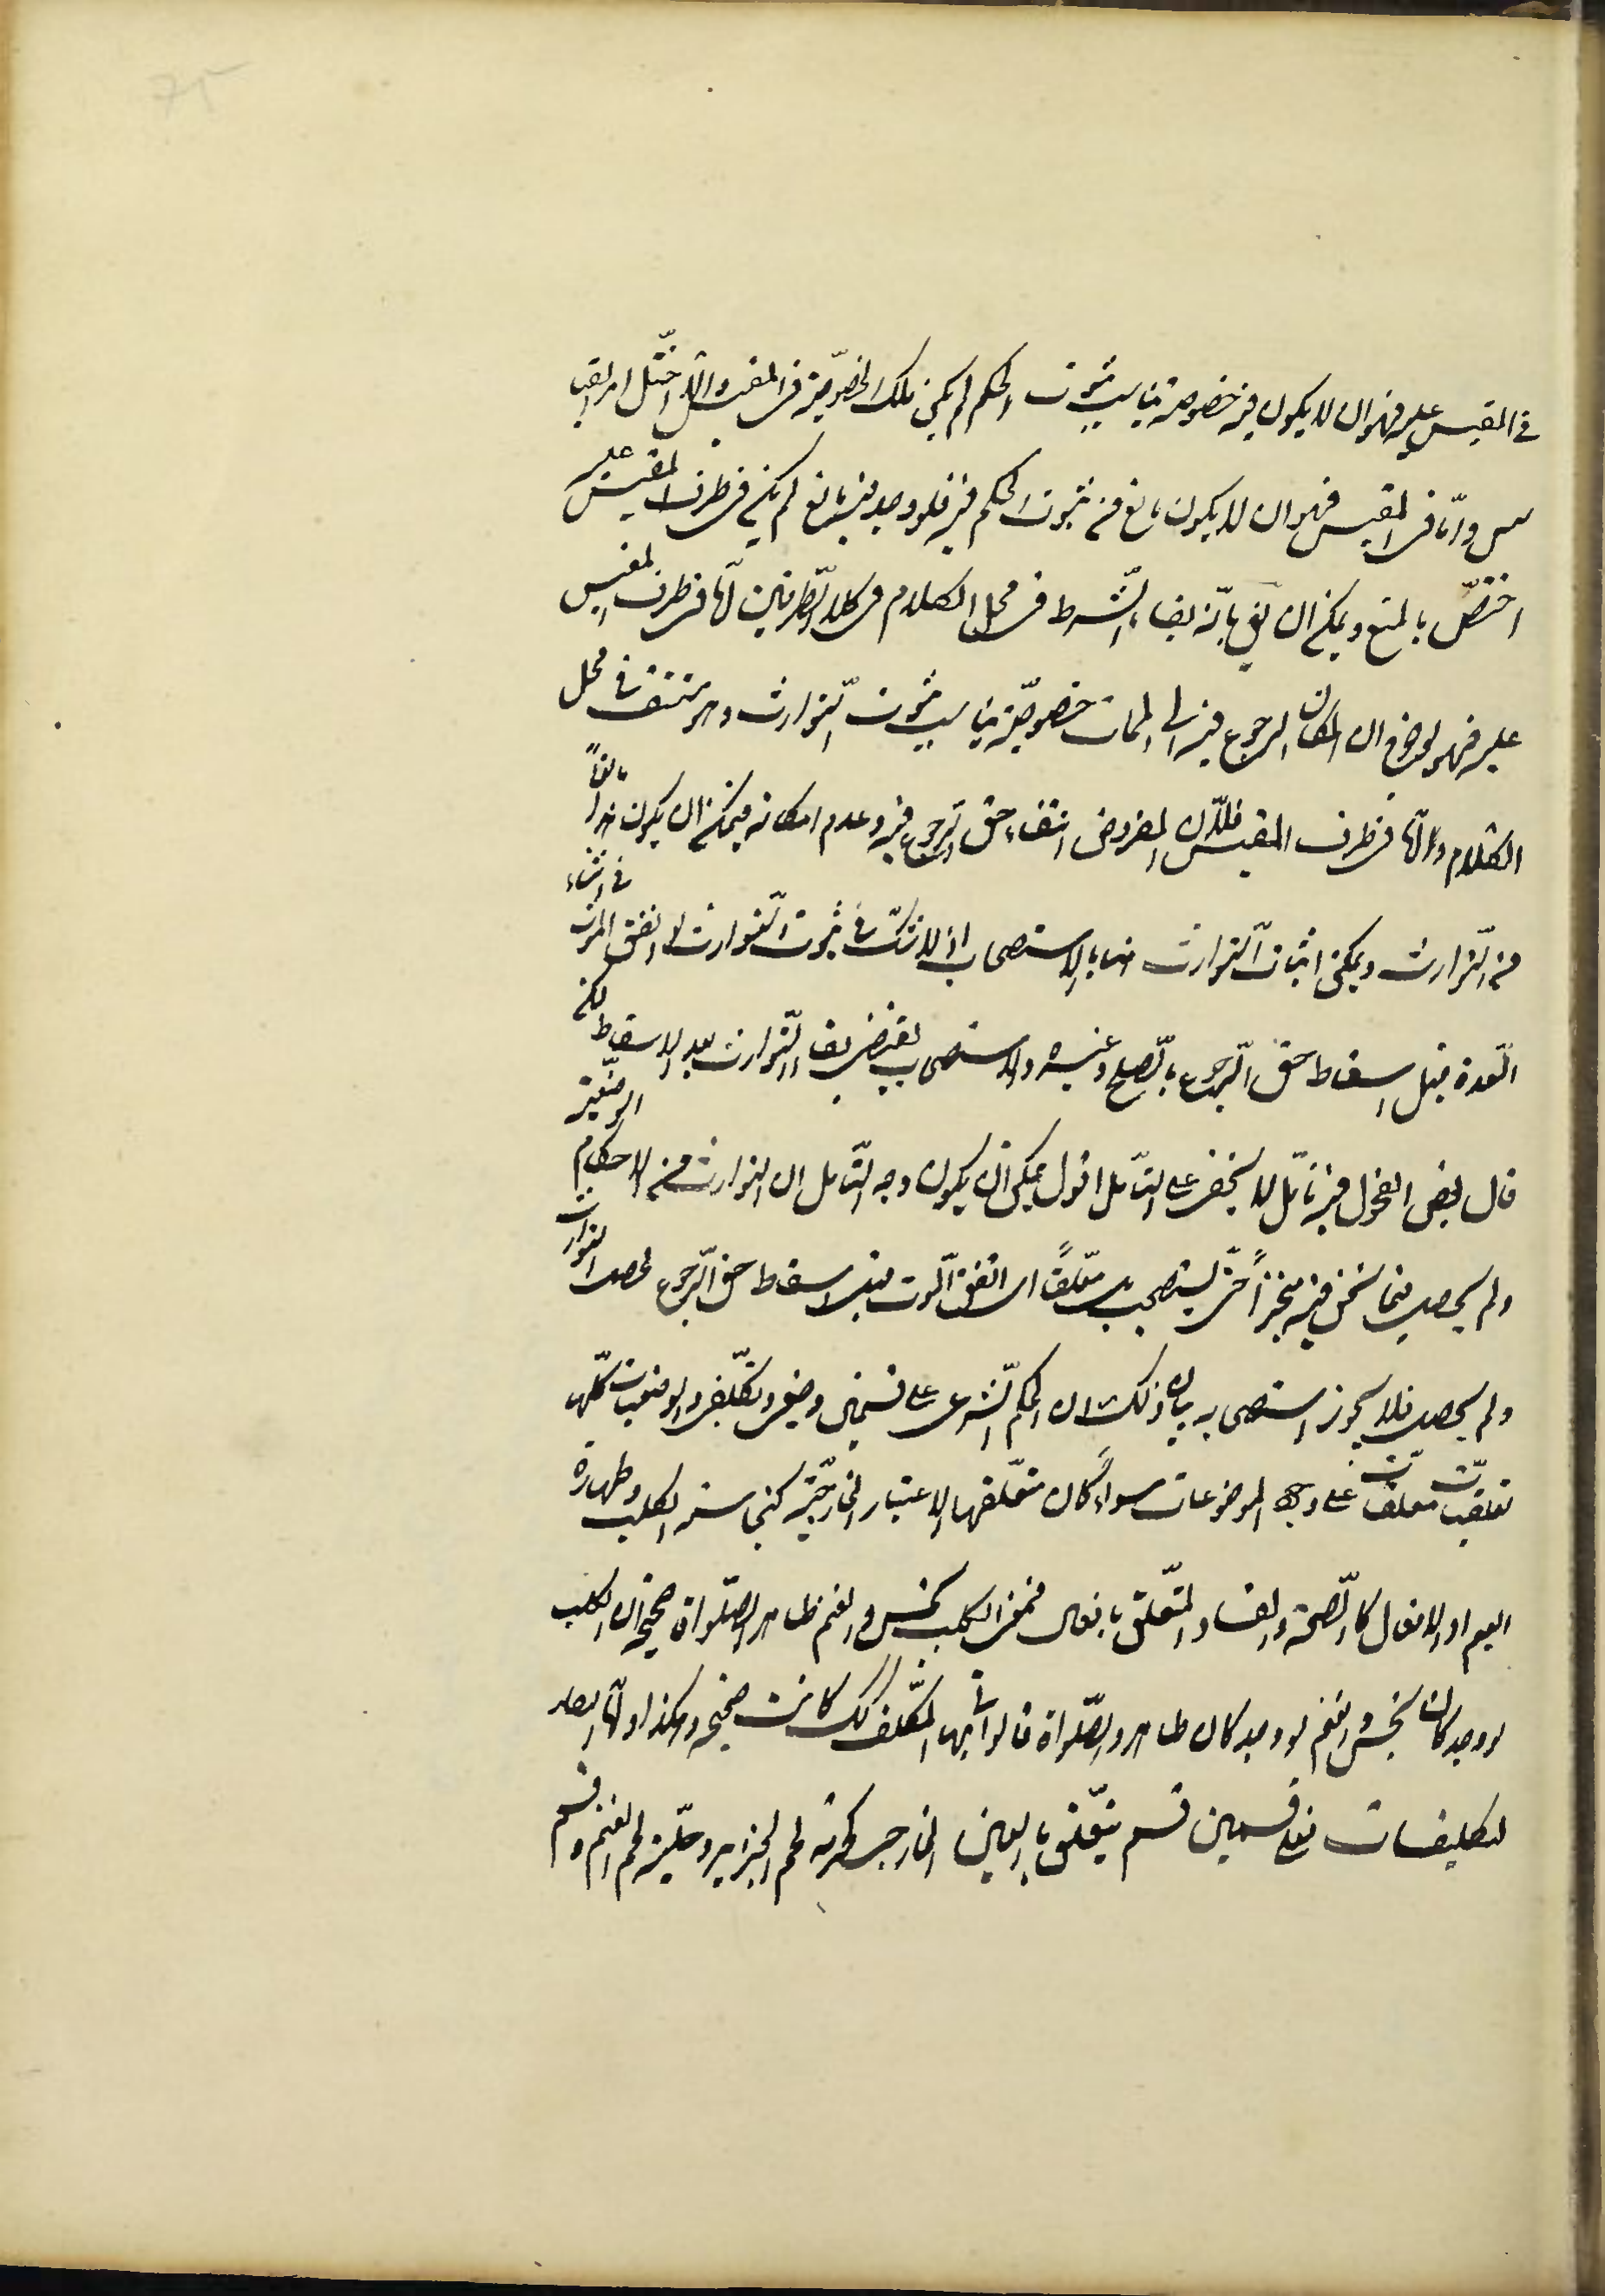 في المقيس عليه فهو ان لا يكون فيه خصوصية يناسب ثبوت الحكم لم يكن تلك الخصوصية في المقيس والا اختل امر القيا
س واما في المقيس فهو ان لا يكون مانع من ثبوت الحكم فيه فلو وجد فيه مانع لم يكن في طرف المقيس عليه
اختص بالمنع ويمكن ان يق بانه الشرط في محل الكلام في كلا الطرفين اما في طرف المقيس
عليه فهو لوضوح ان امكان الرجوع فيه الى الممات خصوصية يناسب ثبوت التوارث وهو منتف في محل
الكلام واما في طرف المقيس فلان المفروض انتفاء حق الرجوع فيه وعدم امكانه فيمكن ان يكون هذا مانعاً
من التوارث ويمكن اثبات التوارث هنا بالاستصحاب اذ لا شك في ثبوت التوارث لو اتفق الموت في اثناء
العدة قبل اسقاط حق الرجوع بالصلح وغيره والاستصحاب يقتضى بقاء التوارث بعد الاسقاط لكن
قال بعض الفحول فيه تأمل لا يخفى على التأمل اقول يمكن ان يكون وجه التأمل ان التوارث من الاحكام الوضعية
ولم يحصل فيما نحن فيه منجزاً حتى يستصحب بل معلقاً اى ان اتفق الموت قبل اسقاط حق الرجوع لحصل التوارث
ولم يحصل فلا يجوز استصحابه بيان ذلك ان الحكم الشرعى على قسمين وضعى وتكليفى والوضعيات كلها
تعليقيات معلقات على وجود الموضوعات سواء كان متعلقها الاعتبار الخارجية كنجاسة الكلب وطهارة
الغنم او الافعال كالصحة والفساد المتعلق بافعال فمعنى الكلب نجس والغنم طاهر والصلواة صحيحة ان الكلب
لو وجد كان نجس والغنم لو وجد كان طاهر والصلواة فالو اتى بها المكلف كك كانت صحيحه وهكذا واما
التكليفات فعلى قسمين قسم يتعلق بالعين الخارجى كحرمة لحم الخنزير وحلية لحم الغنم وقسم